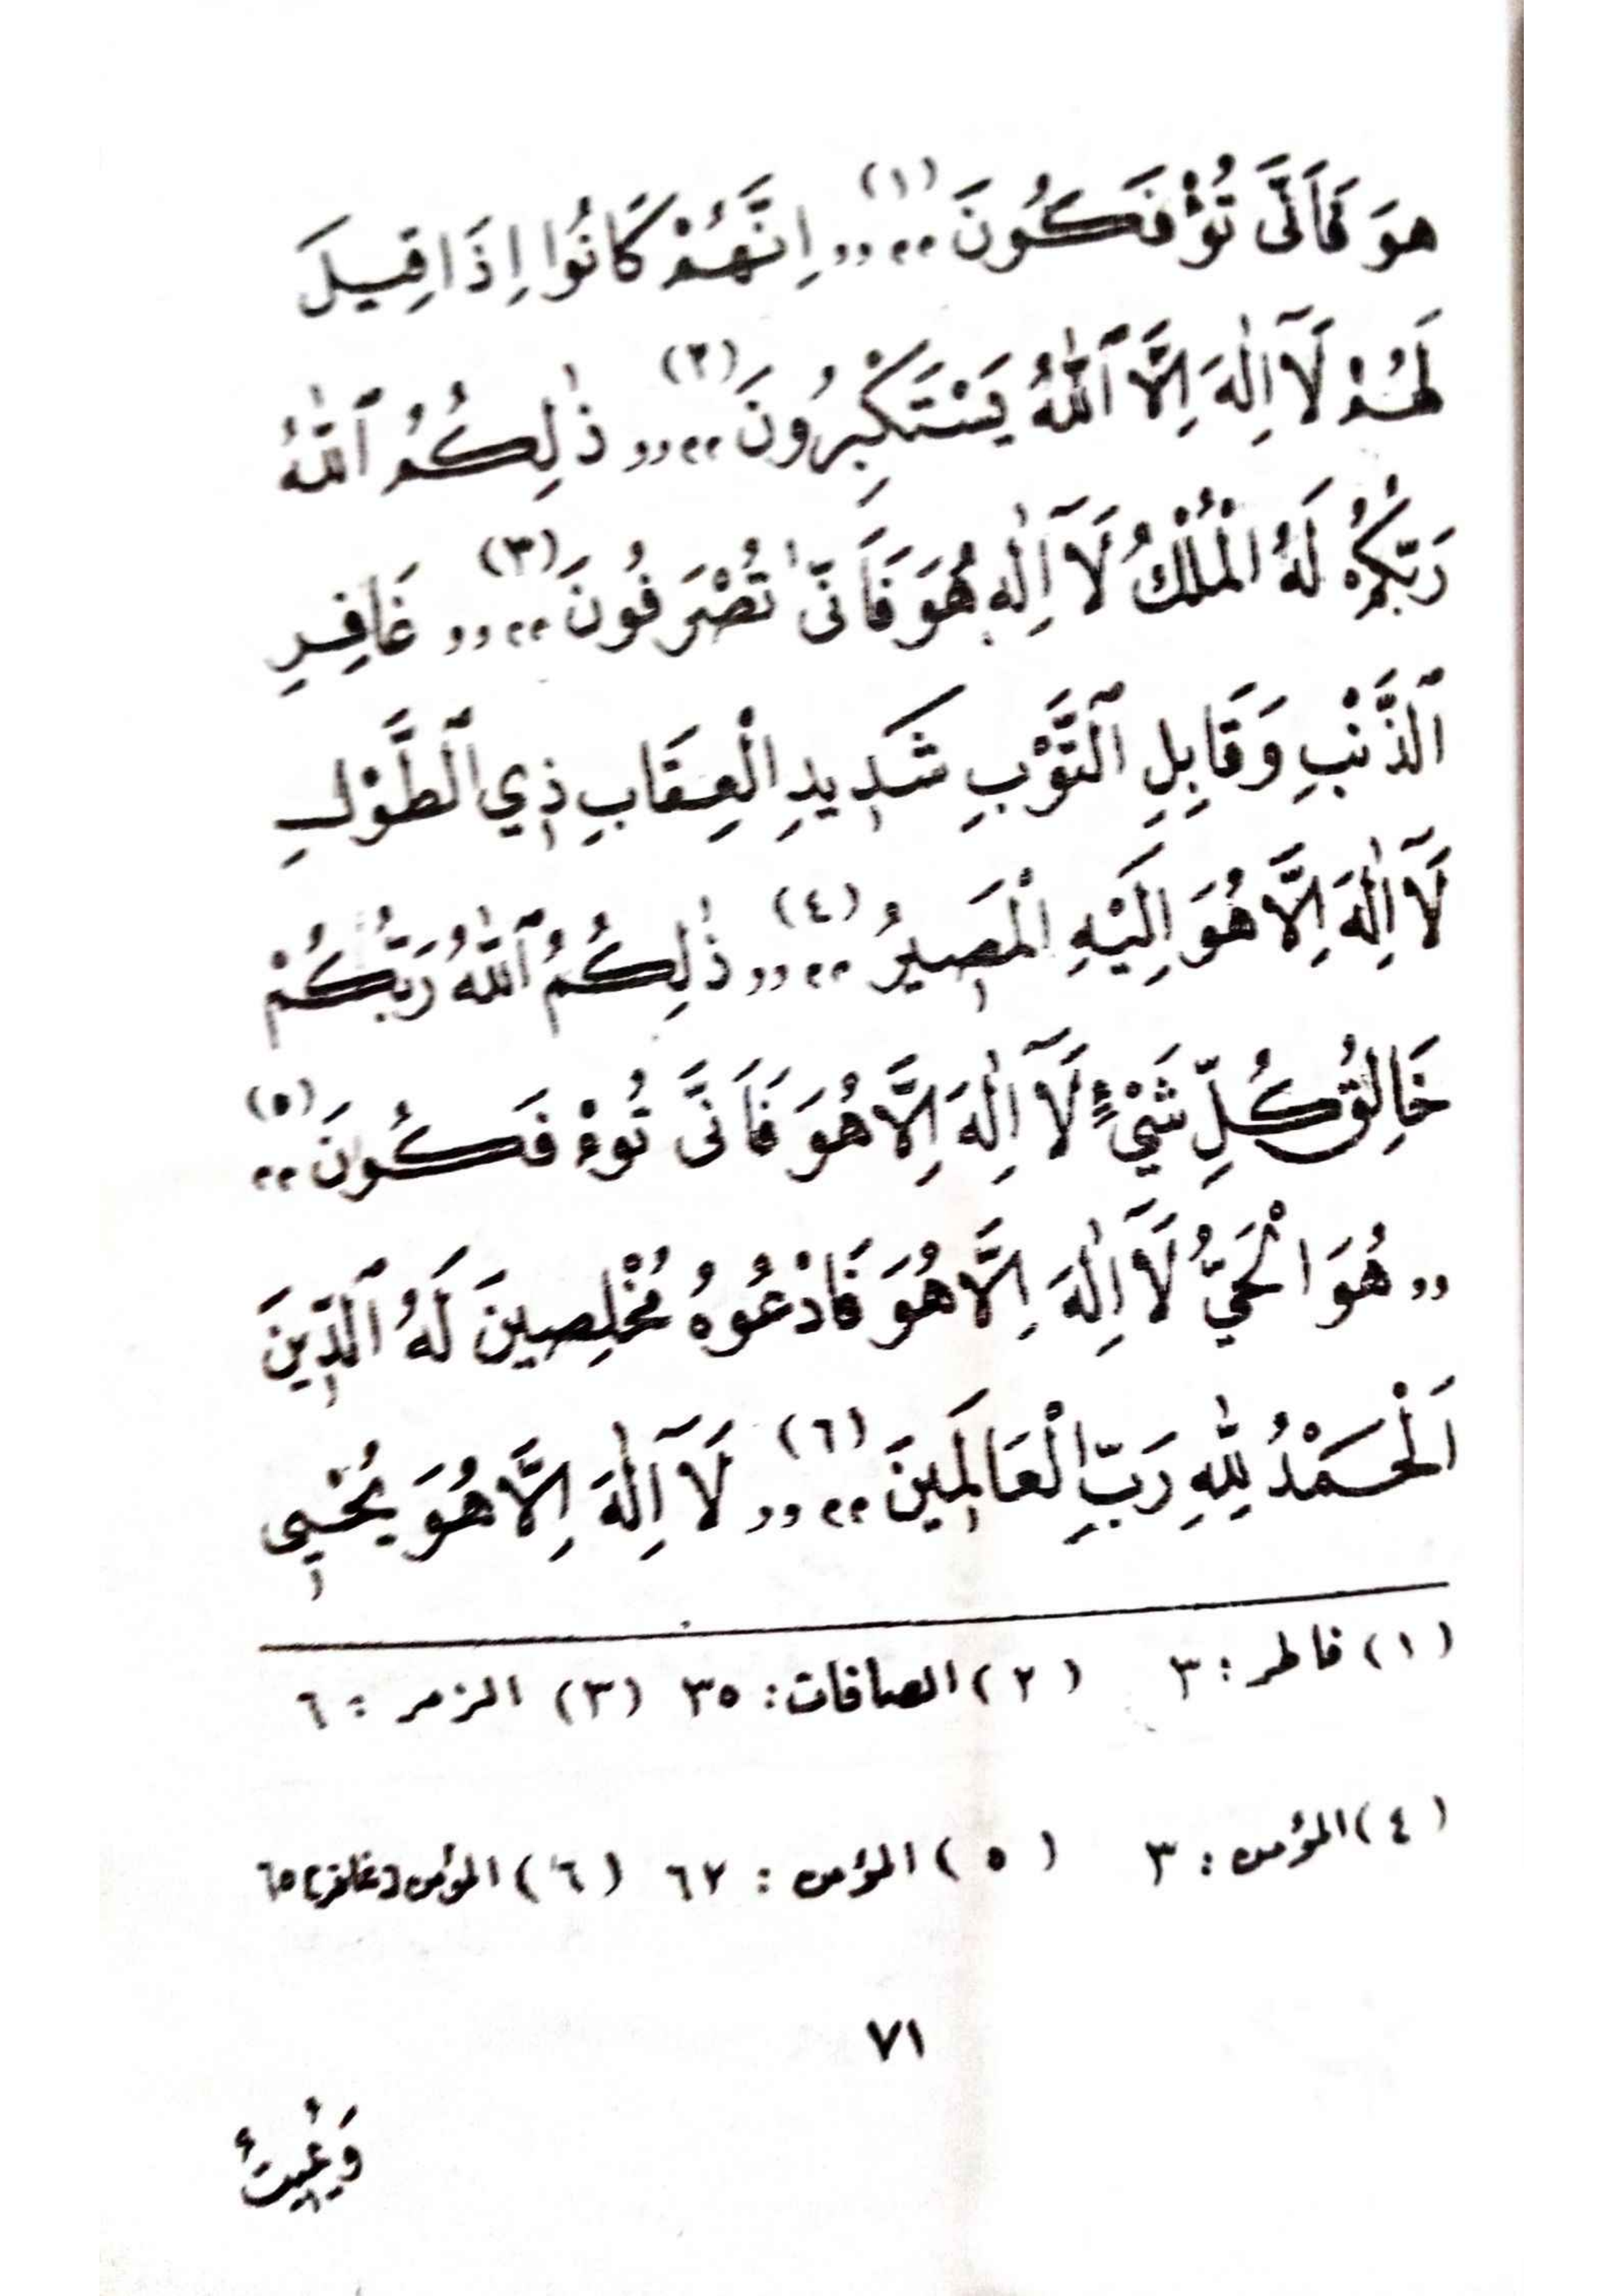 هوَ فَاَنَّى تُؤْفَكُونَ (١) ،، ,, اِنَّهُمْ كَانُوا اِذَا قِيلَ
لَهُمْ لَآ اِلٰهَ اِلَّا ٱللّٰهُ يَسْتَكْبِرُونَ (٢) ،، ,, ذٰلِكُمُ ٱللّٰهُ
رَبُّكُمْ لَهُ الْمُلْكُ لَآ اِلٰهَ هُوَ فَاَنّٰى تُصْرَفُونَ (٣) ،، ,, غَافِرِ
ٱلذَّنْبِ وَقَابِلِ ٱلتَّوْبِ شَدِيدِ الْعِقَابِ ذِي ٱلطَّوْلِ
لَآ اِلٰهَ اِلَّا هُوَ اِلَيْهِ الْمَصِيرُ (٤) ،، ,, ذٰلِكُمُ ٱللّٰهُ رَبُّكُمْ
خَالِقُ كُلِّ شَيْءٍ لَآ اِلٰهَ اِلَّا هُوَ فَاَنَّى تُوءْفَكُونَ (٥) ،،
,, هُوَ الْحَيُّ لَآ اِلٰهَ اِلَّا هُوَ فَادْعُوهُ مُخْلِصِينَ لَهُ ٱلدِّينَ
اَلْحَمْدُ لِلّٰهِ رَبِّ الْعَالَمِينَ (٦) ،، ,, لَآ اِلٰهَ اِلَّا هُوَ يُحْيِى
(١) فاطر : ٣ (٢) الصافات : ٣٥ (٣) الزمر : ٦
(٤) المؤمن : ٣ (٥) المؤمن : ٦٢ (٦) المؤمن [غافر] ٦٥
٧١
وَيُمِيتُ